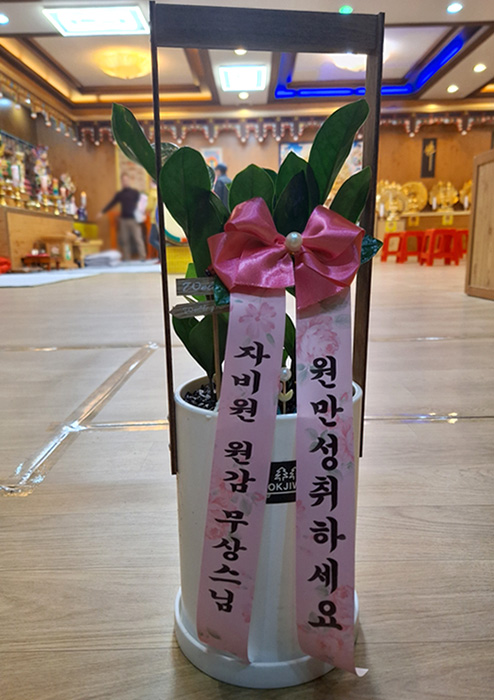 자비원 원감 무상스님
원만성취하세요
OKJIW